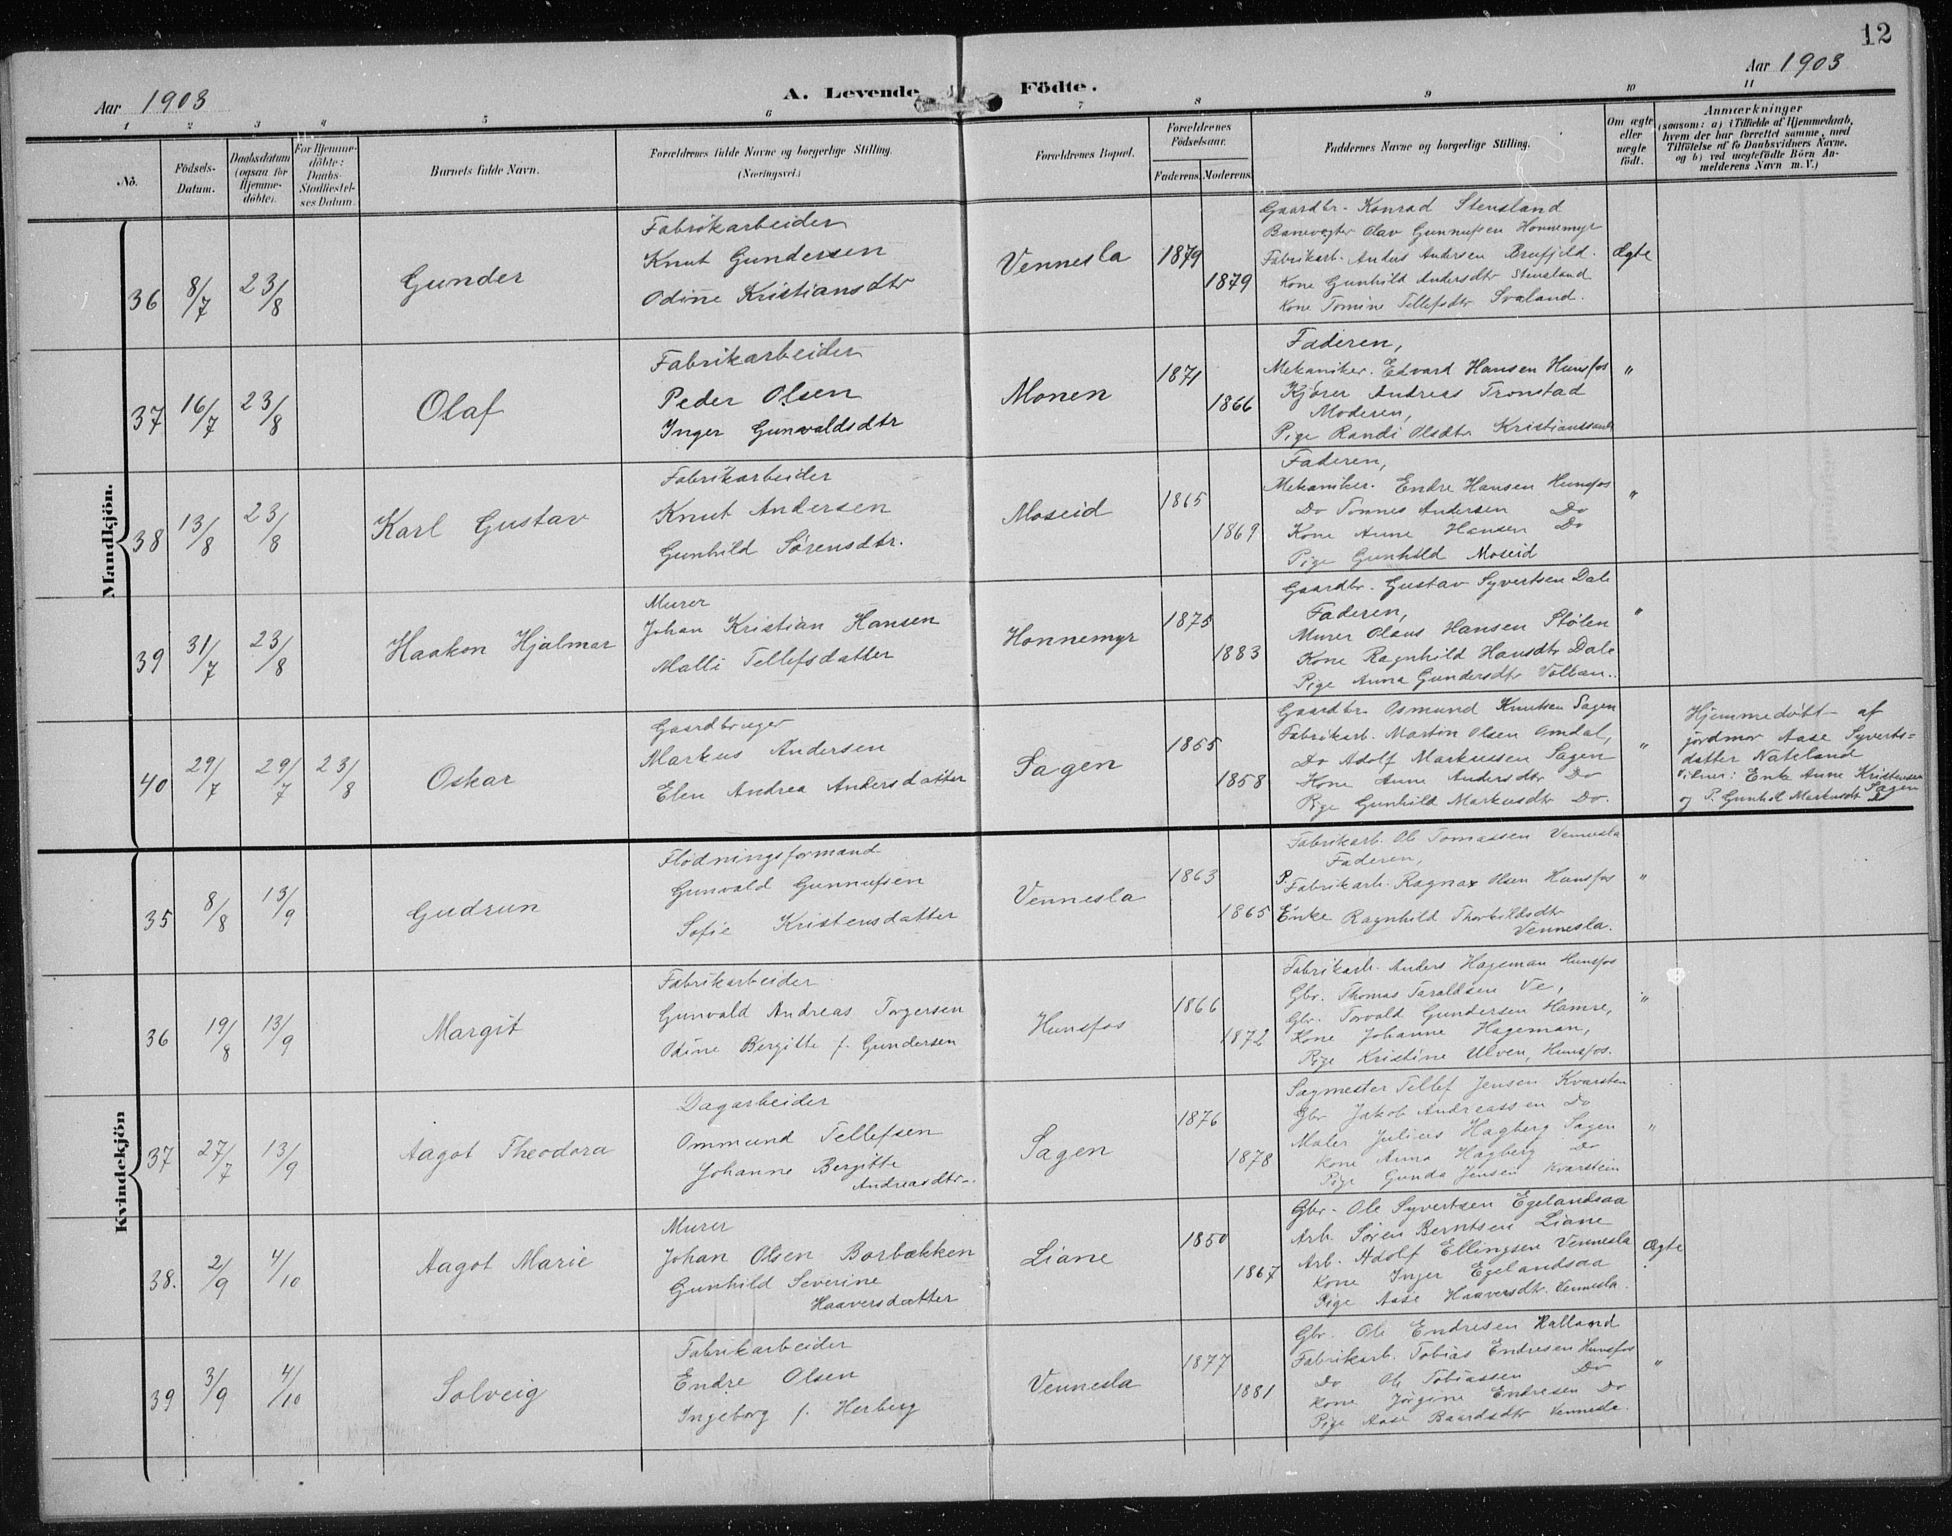 12
Aar 1903
A. Levende Födte.
Aar 1903
1 2 3 4 5 6 7 8 9 10 11
Nô.
Födsels-Datum.
Daabsdatum (ogsaa for Hjemmedöbte).
For Hjemmedöbte: Daabs-Stadfæstelses Datum.
Barnets fulde Navn.
Forældrenes fulde Navne og borgerlige Stilling.
(Næringsvei.)
Forældrenes Bopæl.
Forældrenes Födselsaar.
Faderens. Moderens.
Faddernes Navne og borgerlige Stilling.
Om ægte eller uægte födt.
Anmærkninger
(saasom: a) i Tilfælde af Hjemmedaab,
hvem der har forrettet samme, med
Tilföielse af to Daabsvidners Navne,
og b) ved uægtefödte Börn An-
melderens Navn m. V.)
Mandkjön.
36 8/7 23/8 Gunder
Fabrikarbeider
Knut Gundersen
Odine Kristiansdtr
Vennesla 1879 1879
Gaardbr. Konrad Stensland
Banevogter Olav Gunnufsen Honnemyr
Fabrikarb. Anders Andersen
Kone Gunhild Andersdtr Stensland
Kone Tomine Tellefsdtr Svaland.
Ægte
37 16/7 23/8 Olaf
Fabrikarbeider
Peder Olsen
Inger Gunvaldsdtr
Monen 1871 1866
Faderen,
Mekaniker. Edvard Hansen Hunsfos
Kjører Andreas Tronstad
Moderen,
Pige Randi Olsdtr Kristianssand
"
38 13/8 23/8 Karl Gustav
Fabrikarbeider
Knut Andersen
Gunhild Sørensdtr.
Moseid 1865 1869
Faderen,
Mekaniker. Endre Hansen Hunsfos
Do Tønnes Andersen Do
Kone Anne Hansen Do
Pige Gunhild Moseid
"
39 31/7 23/8 Haakon Hjalmar
Murer
Johan Kristian Hansen
Malli Tellefsdatter
Honnemyr 1875 1883
Gaardbr. Gustav Syvertsen Dale
Faderen,
Murer Olaus Hansen Stølen
Kone Ragnhild Hansdtr Dale
Pige Anna Gundersdtr
"
40 29/7 29/7 23/8 Oskar
Gaardbruger
Markus Andersen
Elen Andrea Andersdatter
Sagen 1855 1858
Gaardbr. Osmund Knutsen Sagen
Fabrikarb. Martin Olsen Omdal,
Do Adolf Markussen Sagen
Kone Anne Andersdtr Do
Pige Gunhild Markusdtr Do.
"
Hjemmedøbt af
jordmor Aase Syverts-
datter Nateland
Vitner: Enke Anne Kristensen
og P. Gunhil Markusdt Sagen
Kvindekjön
35 8/8 13/9 Gudrun
Flødningsformand
Gunvald Gunnufsen
Sofie Kristensdatter
Vennesla 1863 1865
Fabrikarb. Ole Tomassen Vennesla
Faderen,
P. Fabrikarb. Ragnar Olsen Hunsfos
Enke Ragnhild Thorkildsdtr
Vennesla.
"
36 19/8 13/9 Margit
Fabrikarbeider
Gunvald Andreas Torgersen
Odine Bergitte f. Gundersen
Hunsfos 1866 1872
Fabrikarb. Anders Hageman Hunsfos
Gbr. Thomas Taraldsen Ve,
Gbr. Torvald Gundersen Hamre,
Kone Johanne Hageman,
Pige Kristine Ulven, Hunsfos.
"
37 27/7 13/9 Aagot Theodora
Dagarbeider
Ommund Tellefsen
Johanne Bergitte
Andreasdtr.
Sagen 1876 1878
Sagmester Tellef Jensen Kvarsten
Gbr Jakob Andreassen Do
Maler Julius Hagberg Sagen
Kone Anna Hagberg Do
Pige Gunda Jensen Kvarstein
"
38. 2/9 4/10 Aagot Marie
Murer
Johan Olsen Borbækken
Gunhild Severine
Haaversdatter
Liane 1850 1867
Gbr. Ole Syvertsen Egelandsaa
Arb. Søren Berntsen Liane
Arb. Adolf Ellingsen Vennesla
Kone Inger Egelandsaa
Pige Aase Haaversdtr. Vennesla.
Ægte
39 3/9 4/10 Solveig
Fabrikarbeider
Endre Olsen
Ingeborg f. Herberg
Vennesla 1877 1881
Gbr. Ole Endresen Halland
Fabrikarb. Tobias Endresen Hunsfos
Do Ole Tobiassen Do
Kone Jørgine Endresen Do
Pige Aase Baardsdtr Vennesla.
"